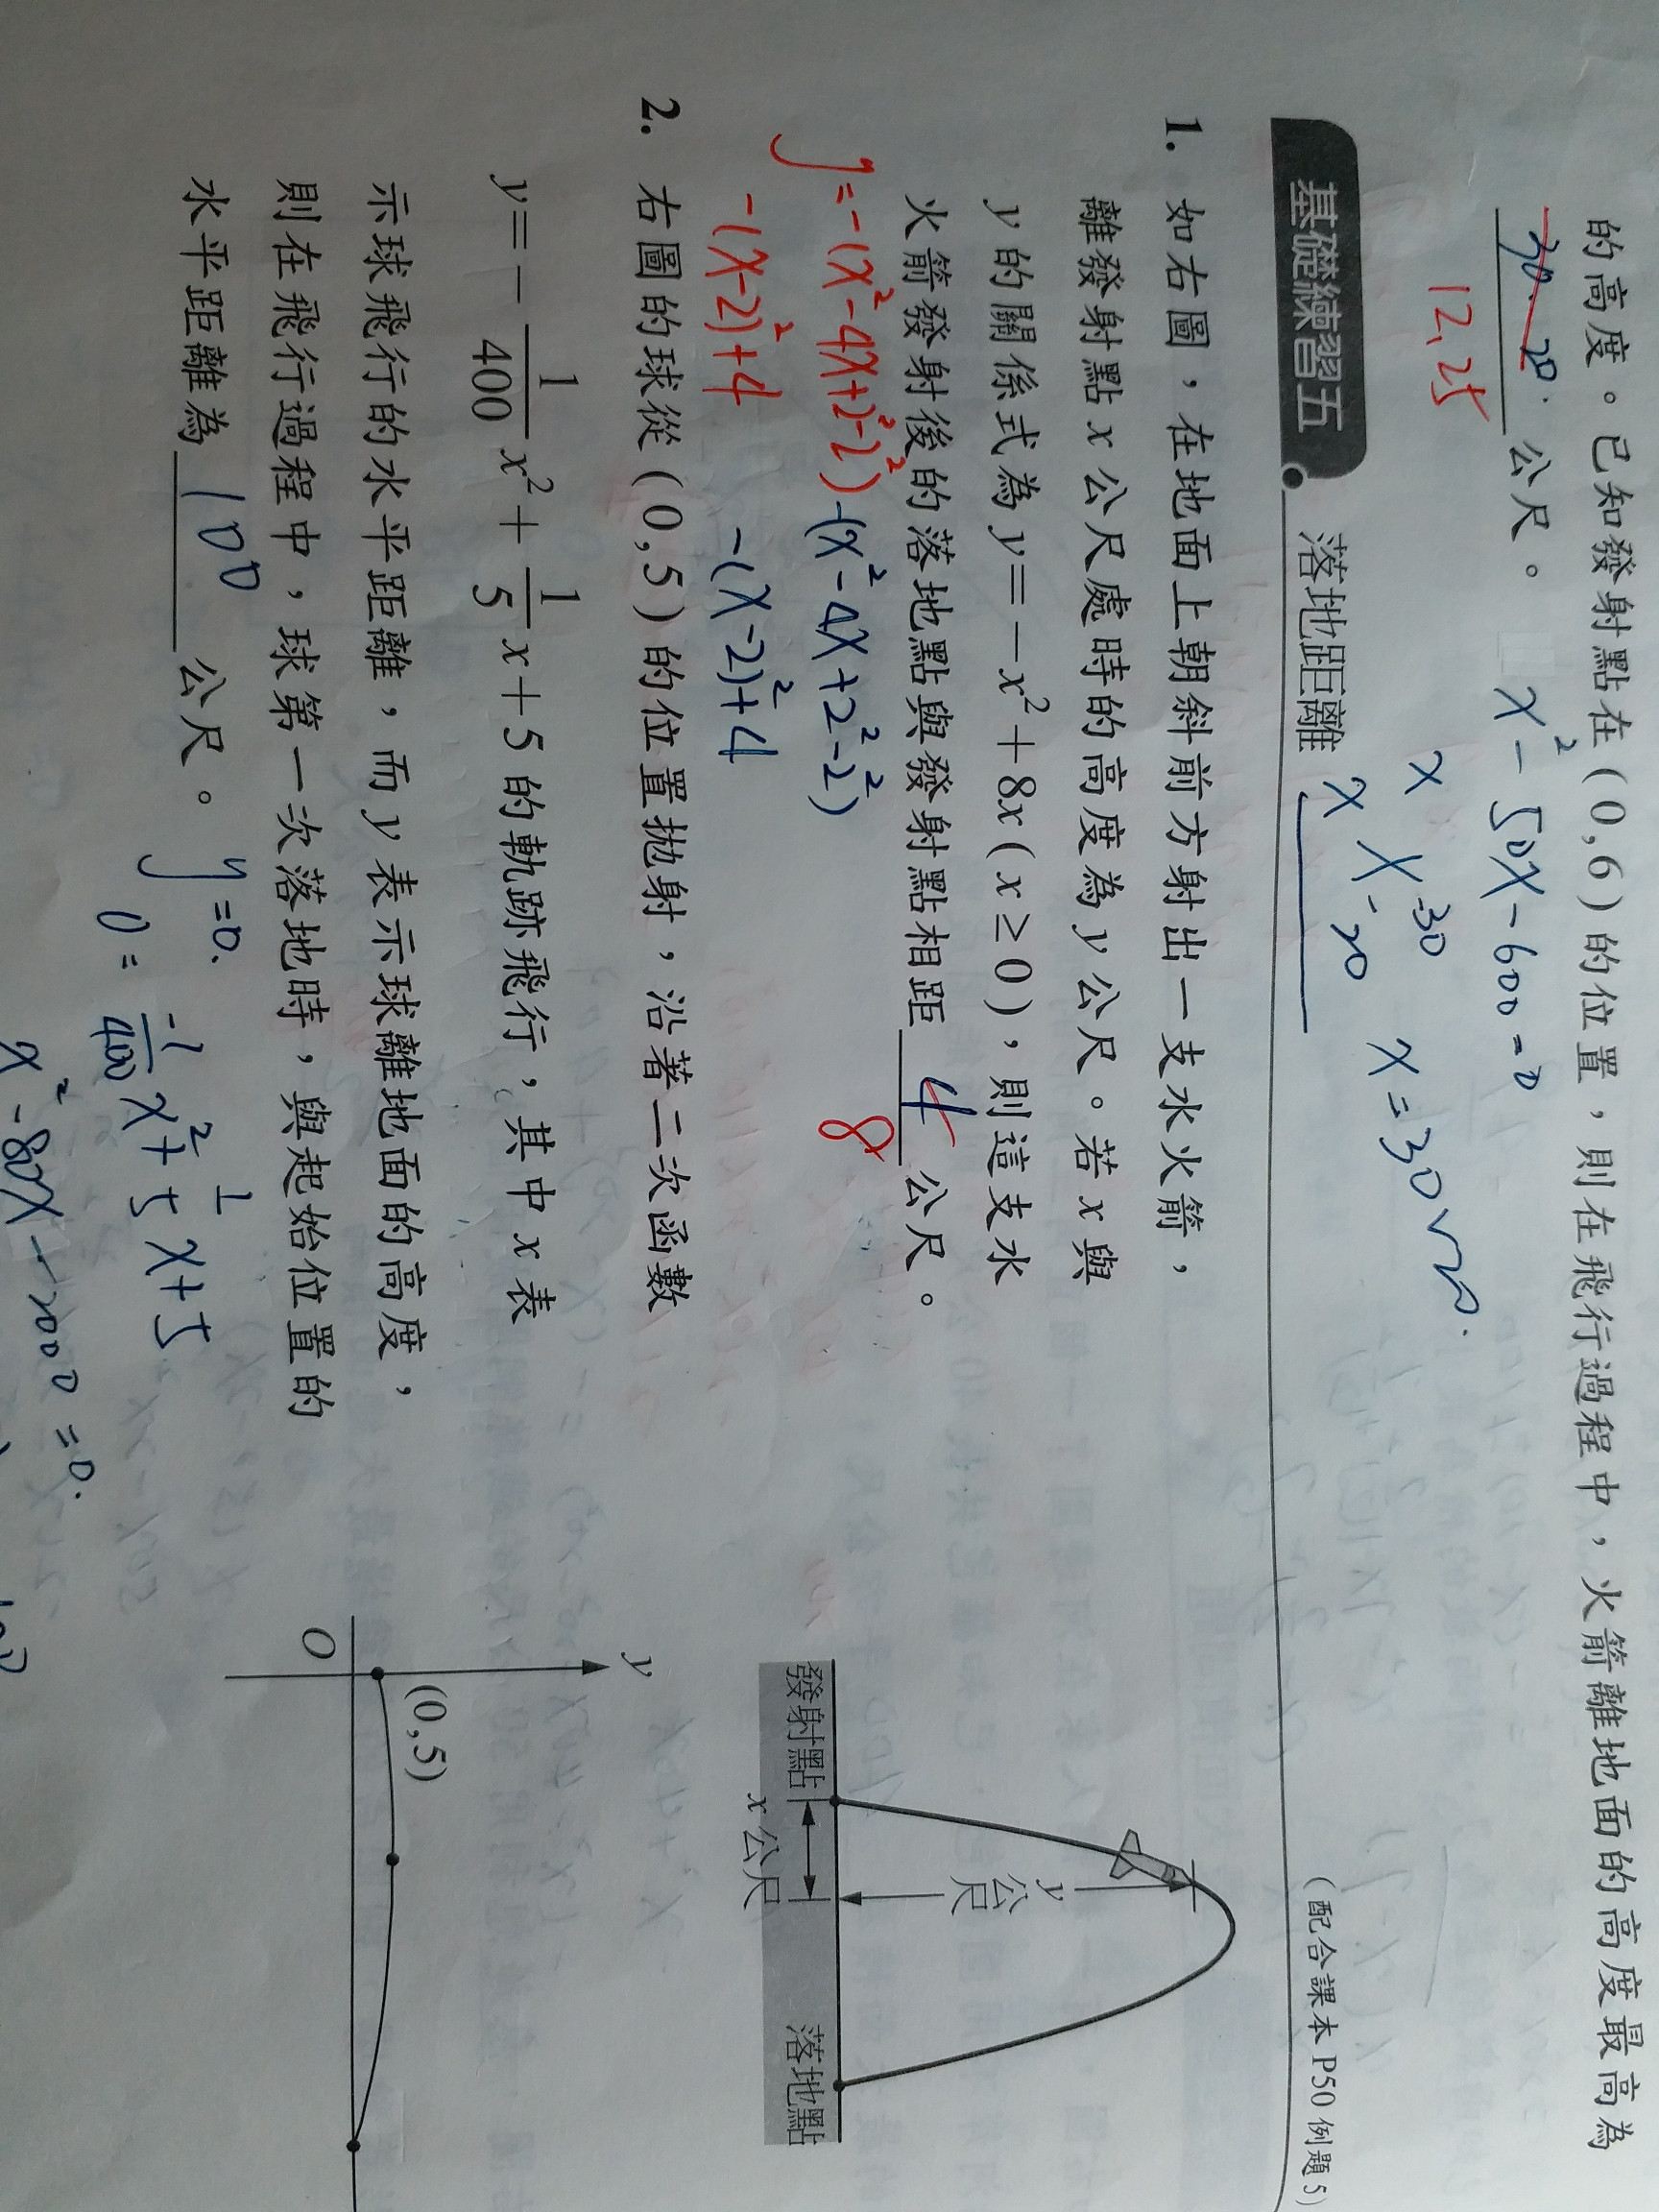 的高度。已知發射點在(0,6)的位置,則在飛行過程中,火箭離地面的高度最高為
30.20. 公尺。
12.25
x²-50x-600=0
x -30
x -20
x=30√20.
基礎練習五 落地距離 (配合課本P50例題5)
1. 如右圖,在地面上朝斜前方射出一支水火箭,
離發射點 x 公尺處時的高度為 y 公尺。若 x 與
y 的關係式為 y=-x²+8x(x≥0),則這支水
火箭發射後的落地點與發射點相距 4 公尺。
8
y=-(x²-4x+2²-2²) -(x²-4x+2²-2²)
-(x-2)²+4 -(x-2)²+4
發射點
落地點
x 公尺
y 公尺
2. 右圖的球從(0,5)的位置拋射,沿著二次函數
y=-1/400 x²+1/5 x+5 的軌跡飛行,其中 x 表
示球飛行的水平距離,而 y 表示球離地面的高度,
則在飛行過程中,球第一次落地時,與起始位置的
水平距離為 100 公尺。
y=0.
0= -1/400 x²+1/5 x+5
x²-80x-2000=0.
y
(0,5)
O